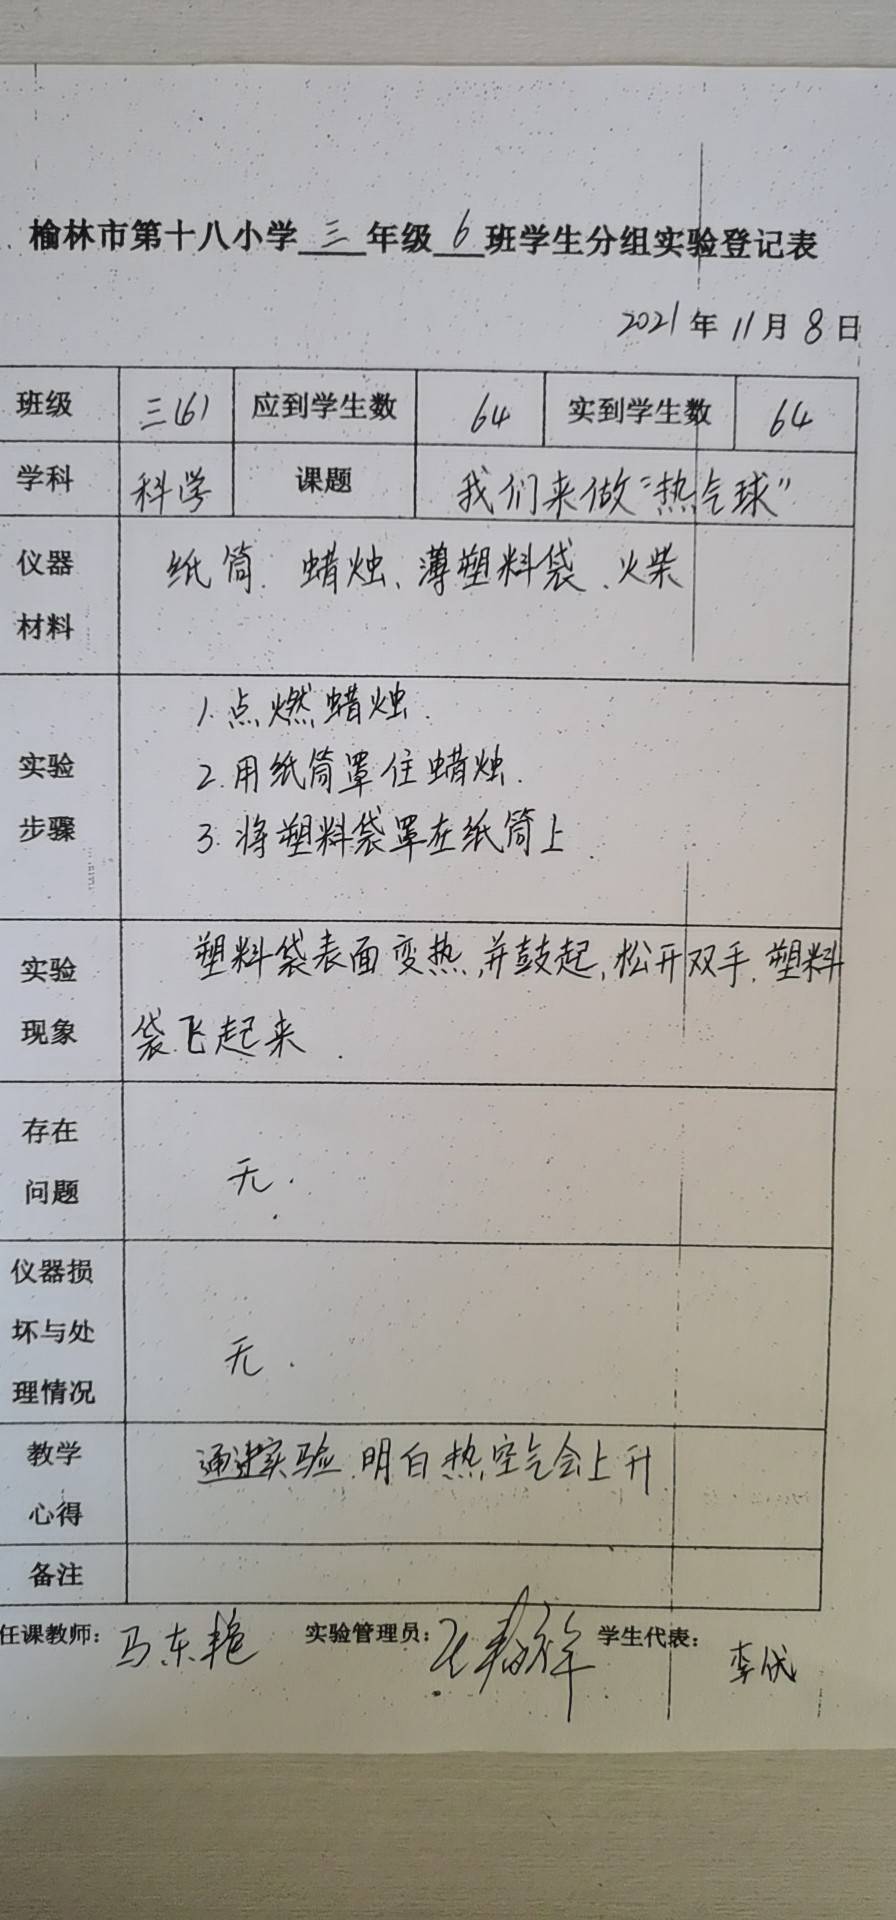 榆林市第十八小学三年级6班学生分组实验登记表
2021年11月8日
班级 三(6) 应到学生数 64 实到学生数 64
学科 科学 课题 我们来做“热气球”
仪器 纸筒、蜡烛、薄塑料袋、火柴
材料
1.点燃蜡烛.
实验 2.用纸筒罩住蜡烛.
步骤 3.将塑料袋罩在纸筒上
实验 塑料袋表面变热,并鼓起,松开双手,塑料
现象 袋飞起来.
存在
问题 无.
仪器损
坏与处 无.
理情况
教学 通过实验,明白热空气会上升
心得
备注
任课教师: 马东艳 实验管理员: 学生代表: 李优